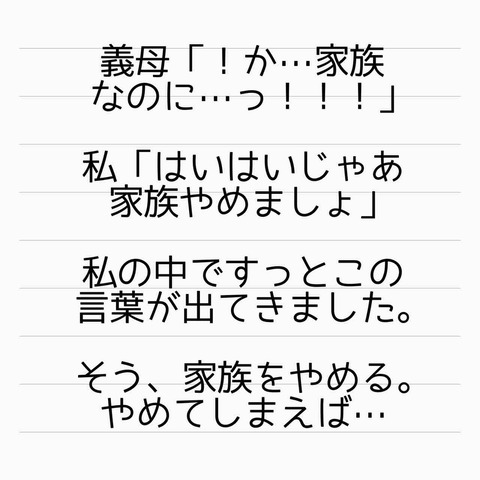 義母「！か…家族
なのに…っ！！！」
私「はいはいじゃあ
家族やめましょ」
私の中ですっとこの
言葉が出てきました。
そう、家族をやめる。
やめてしまえば…